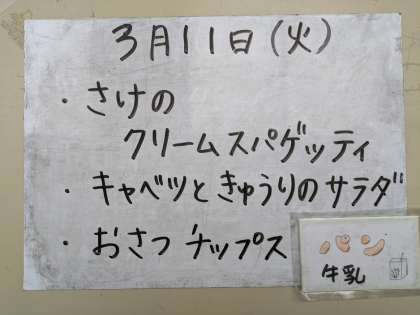 3月11日(火)
・さけの
クリームスパゲッティ
・キャベツときゅうりのサラダ
・おさつチップス
パン
牛乳